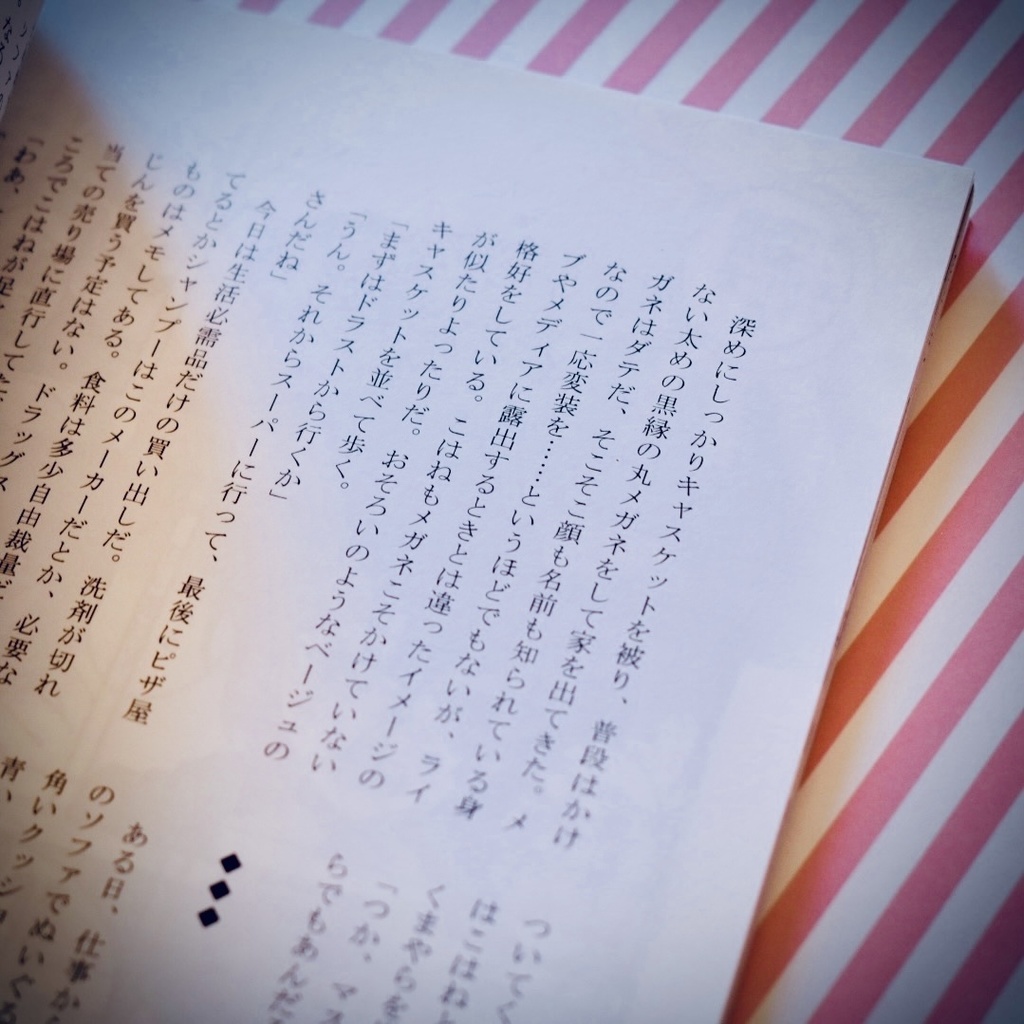 深めにしっかりキャスケットを被り、普段はかけ
ない太めの黒縁の丸メガネをして家を出てきた。メ
ガネはダテだ、そこそこ顔も名前も知られている身
なので一応変装を……というほどでもないが、ライ
ブやメディアに露出するときとは違ったイメージの
格好をしている。こはねもメガネこそかけていない
が似たりよったりだ。おそろいのようなベージュの
キャスケットを並べて歩く。
「まずはドラストから行くか」
「うん。それからスーパーに行って、最後にピザ屋
さんだね」
今日は生活必需品だけの買い出しだ。洗剤が切れ
てるとかシャンプーはこのメーカーだとか、必要な
ものはメモしてある。食料は多少自由裁量だ
じんを買う予定はない。ドラッグス
当ての売り場に直行して
ころでこはねが足
「わあ、
ついてく
はこはねと
くまやらを
「つか、マス
らでもあんだ
◆◆◆
ある日、仕事か
のソファでぬいぐる
角いクッショ
青い